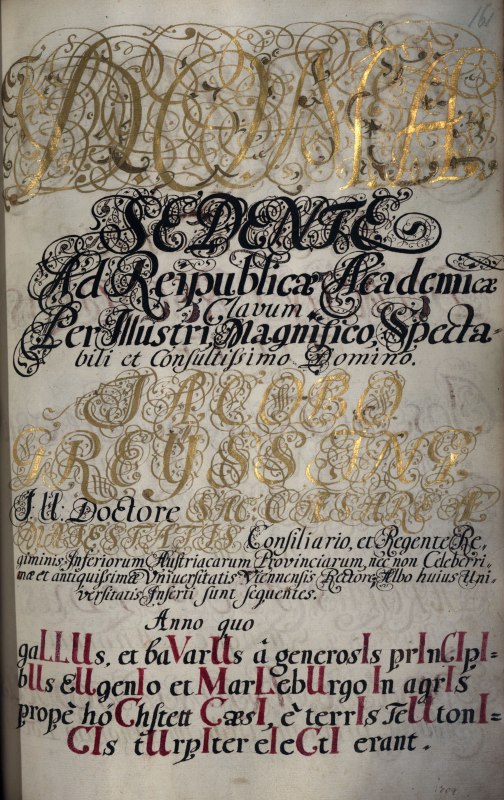 SEDENTE
Ad Reipublicæ Academicæ
Clavum
Per Illustri, Magnifico, Specta-
bili et Consultissimo Domino.
JACOBO
GREYSSING.
I. U. Doctore SAC: CÆSAREÆ
MAIESTATIS Consiliario, et Regente Re-
giminis Inferiorum Austriacarum Provinciarum, nec non Celeberri-
mæ et antiquissimæ Universitatis Viennensis Rectore, Albo huius Uni-
versitatis Inserti sunt sequentes.
Anno quo
gaLLUs, et baVarUs à generosIs prInCIpI=
bUs EUgenIo et MarLebUrgo In agrIs
propè höChstett CæsI, è terrIs TeUtonI=
CIs tUrpIter eIeCtI erant.